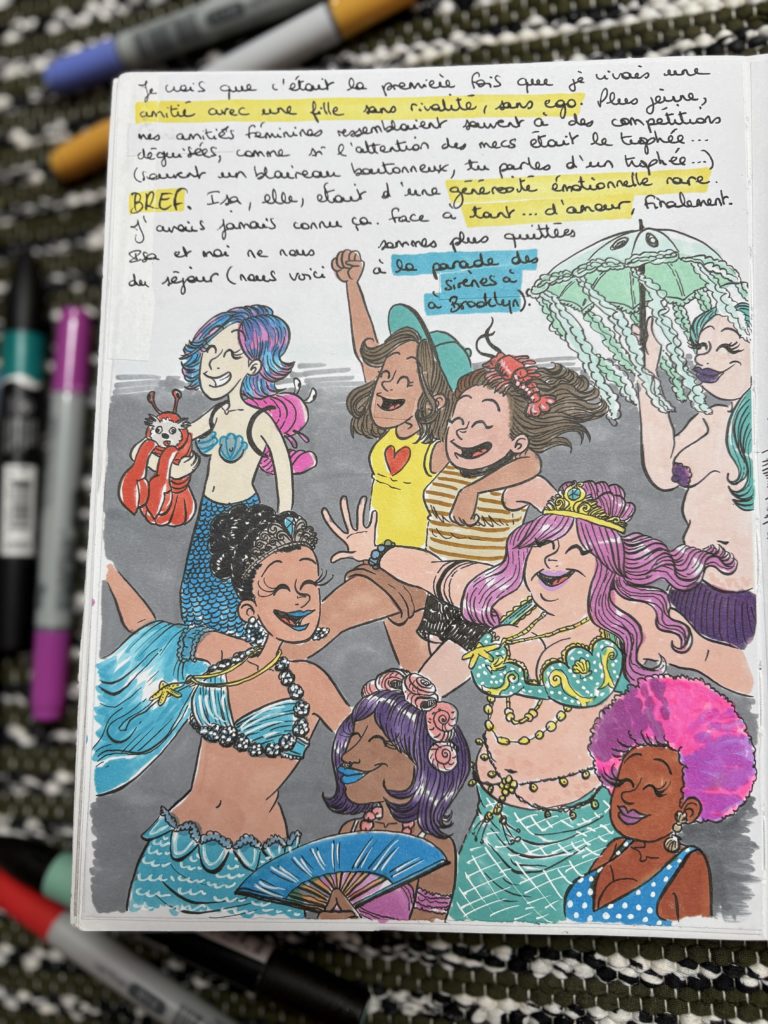 Je crois que c'était la première fois que je vivais une
amitié avec une fille sans rivalité, sans ego. Plus jeune,
mes amitiés féminines ressemblaient souvent à des competitions
déguisées, comme si l'attention des mecs était le trophée...
(souvent un blaireau boutonneux, tu parles d'un trophée...)
BREF. Isa, elle, était d'une générosité émotionnelle rare.
J'avais jamais connu ça. face à tant... d'amour, finalement.
Isa et moi ne nous sommes plus quittées
du séjour (nous voici à la parade des
sirènes à
à Brooklyn).